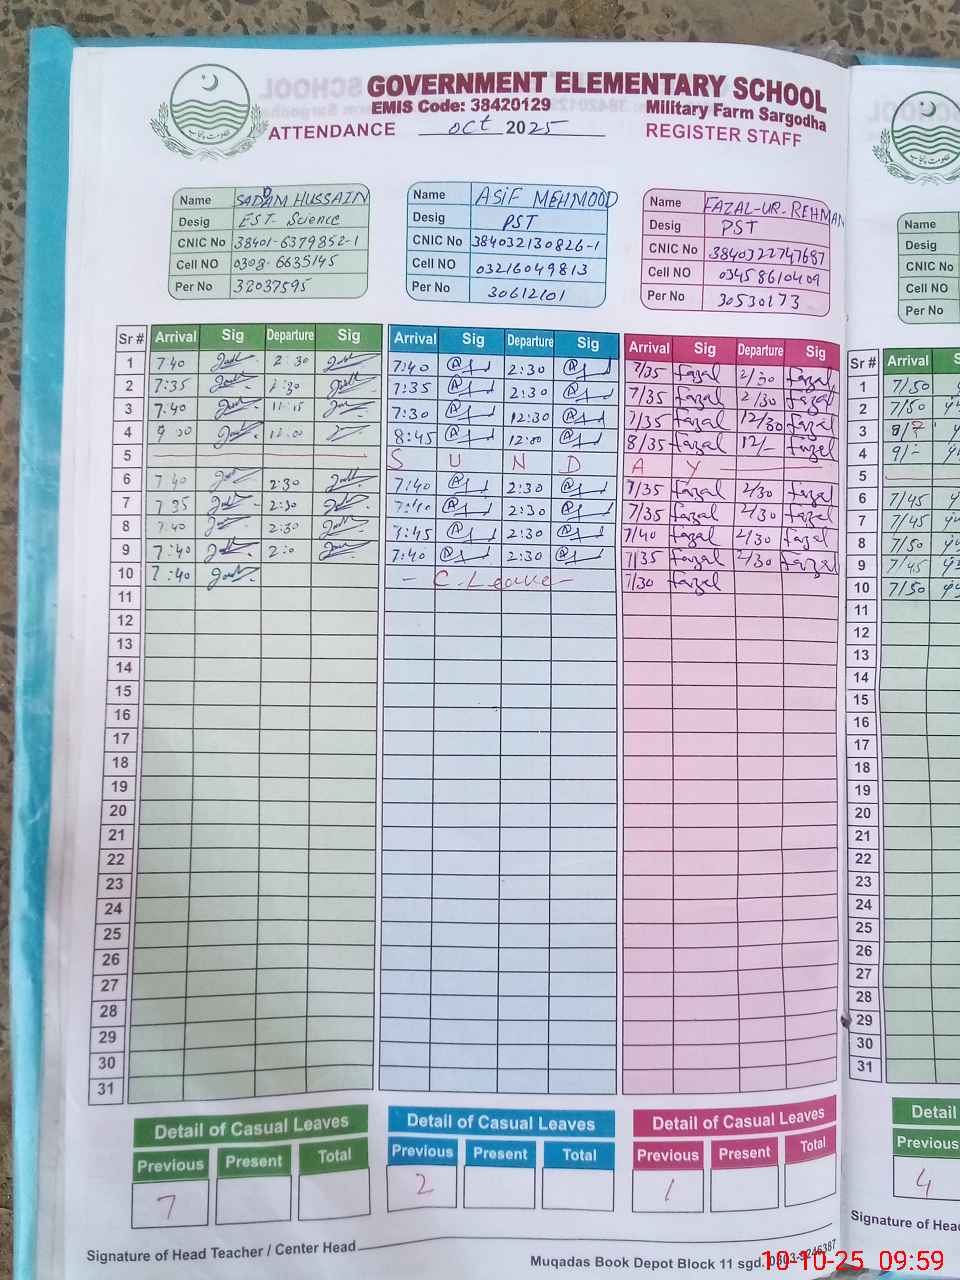 GOVERNMENT ELEMENTARY SCHOOL
EMIS Code: 38420129 Military Farm Sargodha
ATTENDANCE Oct 2025 REGISTER STAFF
Name SADAM HUSSAIN
Desig EST Science
CNIC No 38401-6379852-1
Cell NO 0303-6635145
Per No 32037595
Name ASIF MEHMOOD
Desig PST
CNIC No 384032130826-1
Cell NO 03216049813
Per No 30612101
Name FAZAL-UR-REHMAN
Desig PST
CNIC No 3840322747687
Cell NO 03458610409
Per No 30530173
Name
Desig
CNIC No
Cell NO
Per No
Sr # Arrival Sig Departure Sig Arrival Sig Departure Sig Arrival Sig Departure Sig Sr # Arrival
1 7:40 2:30 7:40 2:30 7/35 fazal 2/30 fazal 1 7/50
2 7:35 7:35 2:30 7/35 fazal 2/30 fazal 2 7/50
3 7:40 11:15 7:30 12:30 7/35 fazal 12/30 fazal 3
4 12:00 8:45 12:00 8/35 fazal 12/- fazal 4 9/-
5 S U N D A Y 5
6 7:40 2:30 7:40 2:30 7/35 fazal 2/30 fazal 6 7/45
7 7:35 2:30 7:40 2:30 7/35 fazal 2/30 fazal 7 7/45
8 7:40 2:30 7:45 2:30 7/40 fazal 2/30 fazal 8 7/50
9 7:40 7:40 2:30 7/35 fazal 2/30 fazal 9 7/45
10 7:40 - C. Leave - 7/30 fazal 10 7/50
11 11
12 12
13 13
14 14
15 15
16 16
17 17
18 18
19 19
20 20
21 21
22 22
23 23
24 24
25 25
26 26
27 27
28 28
29 29
30 30
31 31
Detail of Casual Leaves Detail of Casual Leaves Detail of Casual Leaves Detail
Previous Present Total Previous Present Total Previous Present Total Previous
7 2 1 4
Signature of Head Teacher / Center Head
Muqadas Book Depot Block 11 sgd.
Signature of Hea
10-10-25 09:59